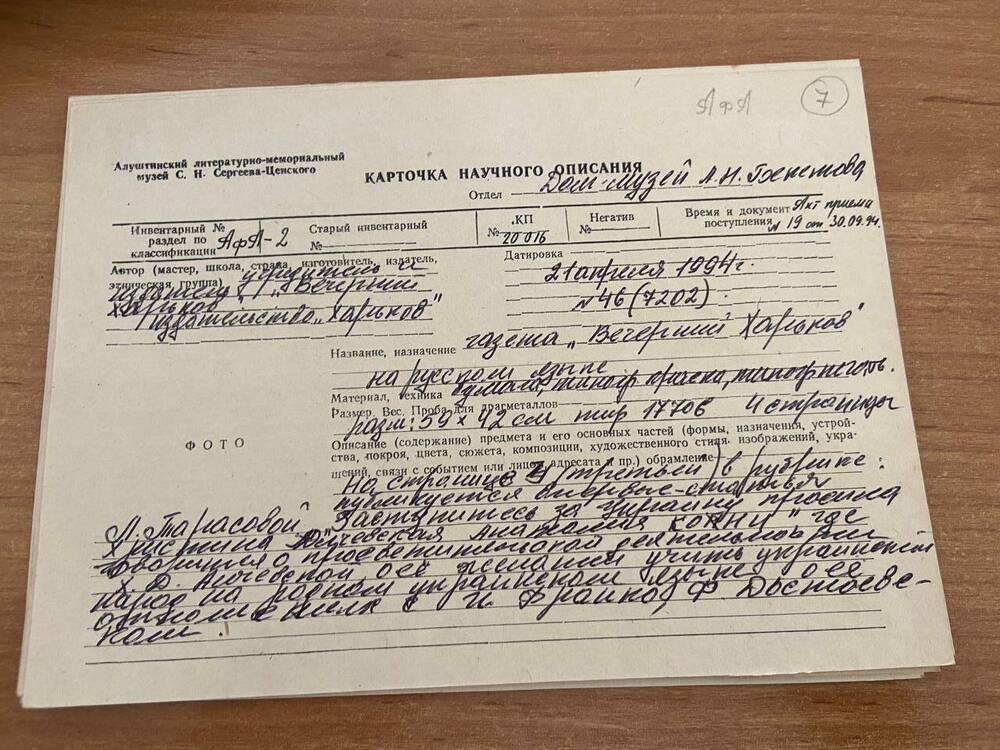 АфА 7
Алуштинский литературно-мемориальный
музей С. Н. Сергеева-Ценского
КАРТОЧКА НАУЧНОГО ОПИСАНИЯ
Отдел Дом-музей А.Н. Бекетова
Инвентарный №
раздел по
классификации АфА-2
Старый инвентарный
№
КП
№ 20016
Негатив
№
Время и документ Акт приема
поступления N 19 от 30.09.94.
Автор (мастер, школа, страна, изготовитель, издатель,
этническая, группа) учредитель и
издатель „Вечерний
Харьков"
издательство „Харьков"
Датировка
21 апреля 1994 г.
N 46 (7202)
Название, назначение газета „Вечерний Харьков"
на русском языке
Материал, техника бумага, типогр краска, типогр печать.
Размер. Вес. Проба для драгметаллов
разм: 59 х 42 см тир 17706 4 страницы
ФОТО
Описание (содержание) предмета и его основных частей (формы, назначения, устрой-
ства, покроя, цвета, сюжета, композиции, художественного стиля изображений, укра-
шений, связи с событием или лицом, адресата и пр.) обрамление
На странице 3 (третьей) в рубрике:
публикуется впервые - статья
Л. Тарасовой „Заступитесь за Украину просила
Христина Алчевская" Анатомия где
говорится о просветительской деятельности
Х. Д. Алчевской, о её желании учить украинский
народ на родном украинском языке, о её
отношении к И Франко, Ф Достоевс-
кому.